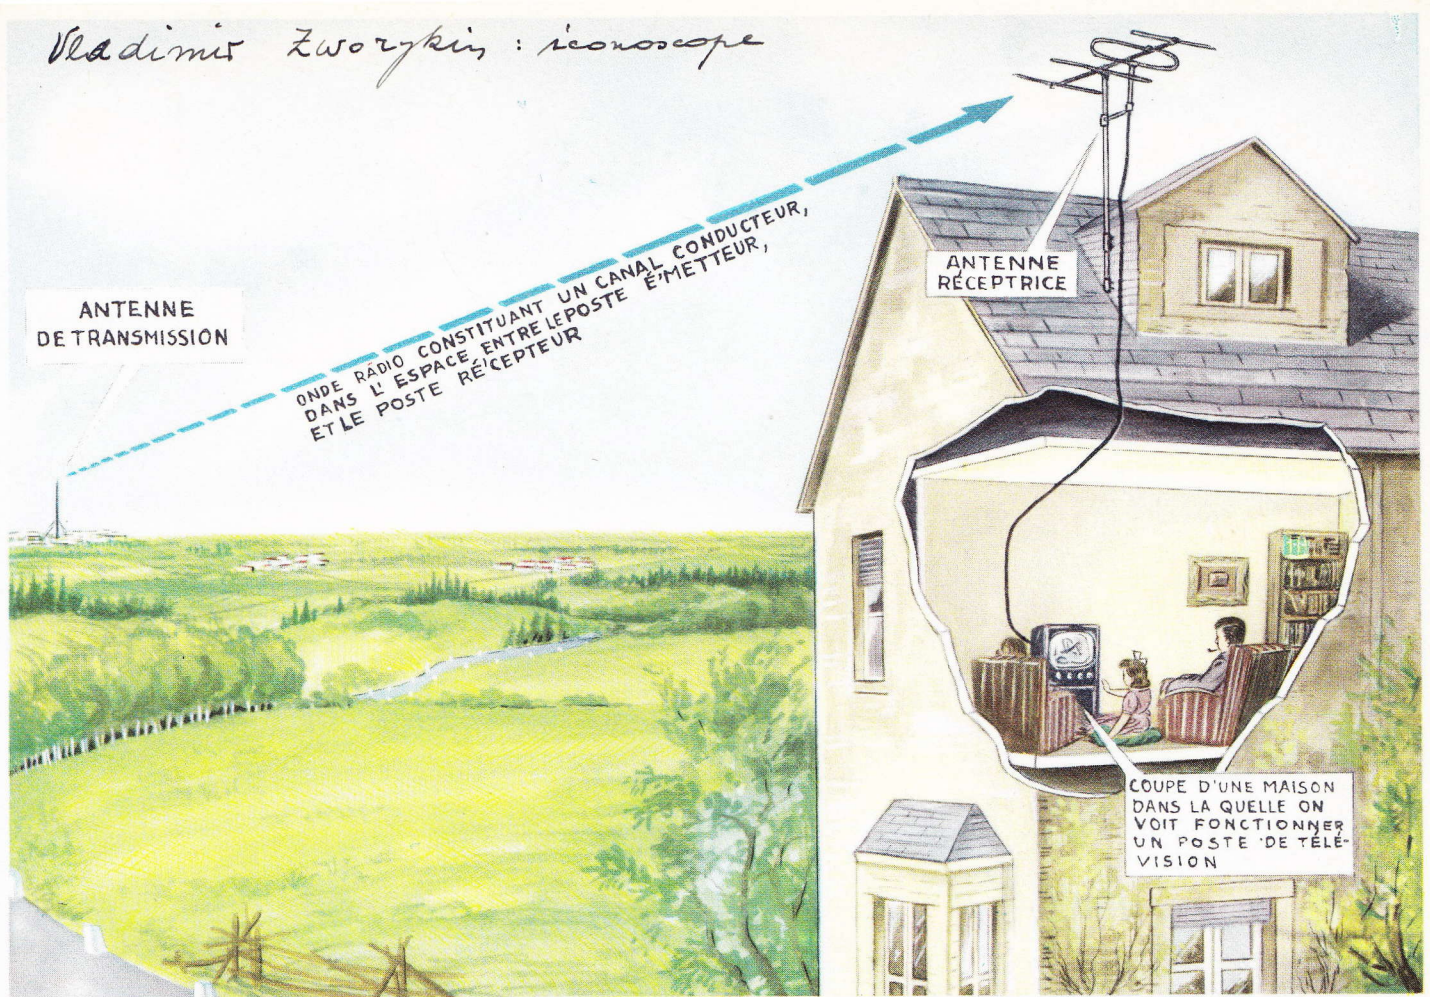 Vladimir Zworykin : iconoscope
ANTENNE
DE TRANSMISSION
ONDE RADIO CONSTITUANT UN CANAL CONDUCTEUR,
DANS L' ESPACE ENTRE LE POSTE É'METTEUR,
ET LE POSTE RÉ'CEPTEUR
ANTENNE
RÉCEPTRICE
COUPE D'UNE MAISON
DANS LA QUELLE ON
VOIT FONCTIONNER
UN POSTE DE TÉLÉ-
VISION